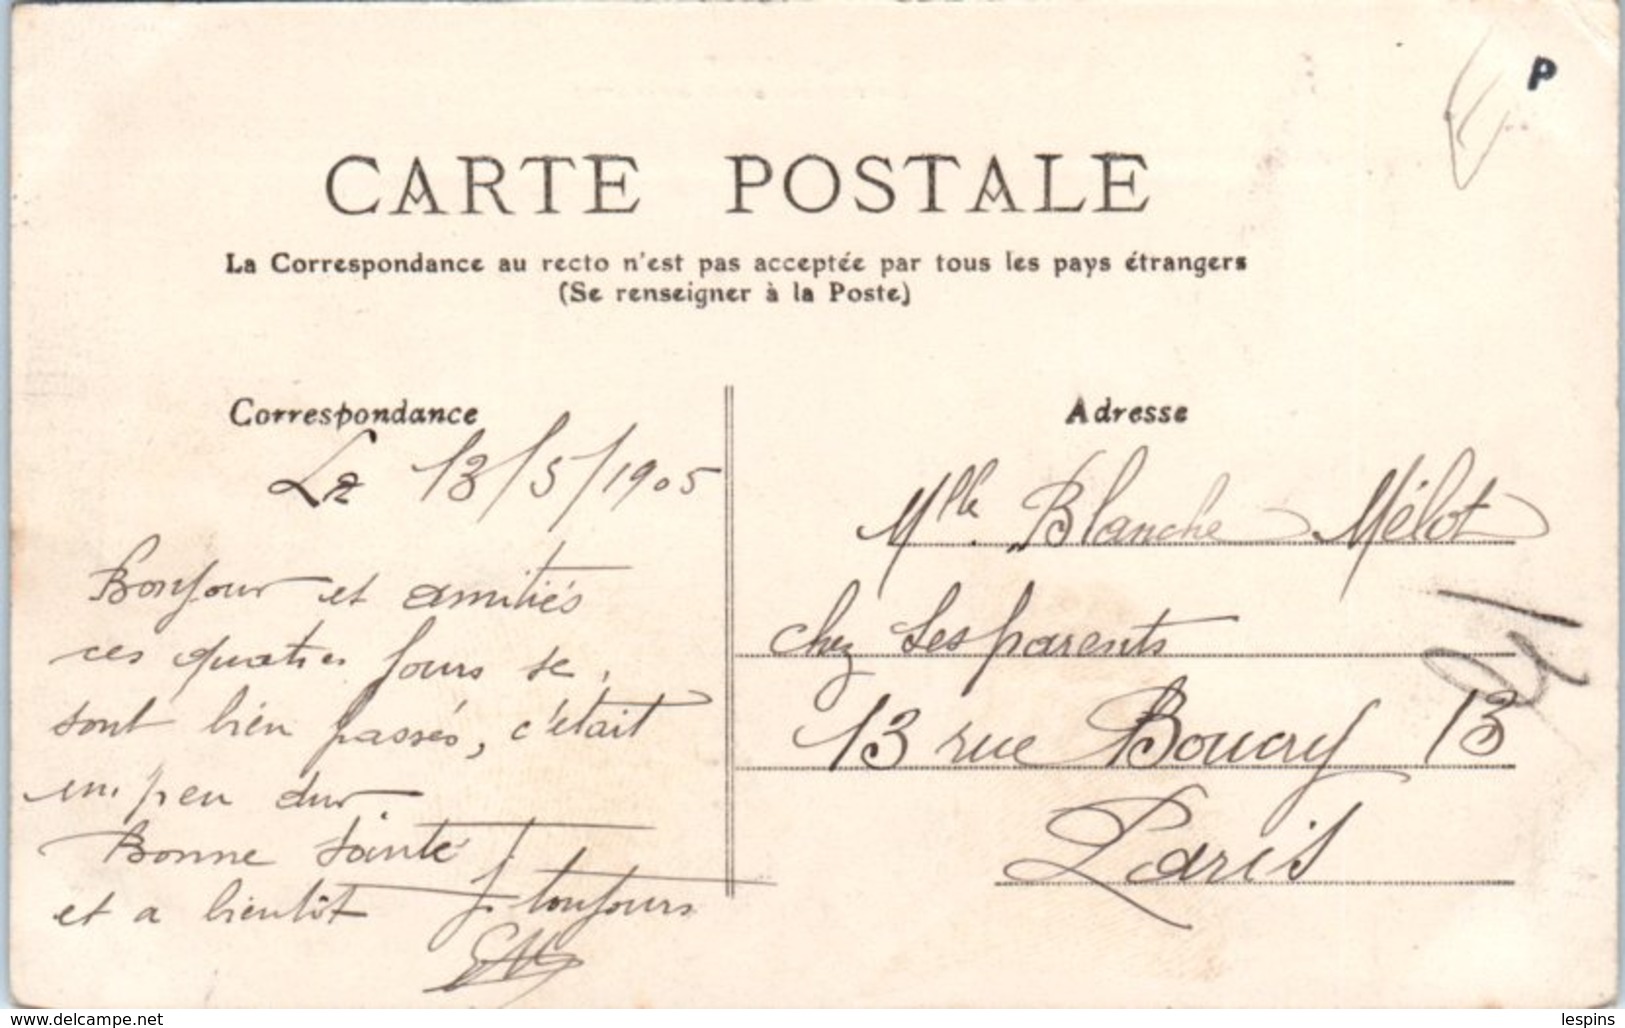 P
CARTE POSTALE
La Correspondance au recto n'est pas acceptée par tous les pays étrangers
(Se renseigner à la Poste)
Correspondance
Le 13/5/1905
Bonjour et amitiés
ces quatres jours se
sont bien passés, c'était
un peu dur.
Bonne Santé
et a bientôt J. toujours
Adresse
Mlle Blanche Mélot
chez Ses parents
13 rue Boucry 13
Paris
www.delcampe.net
lespins